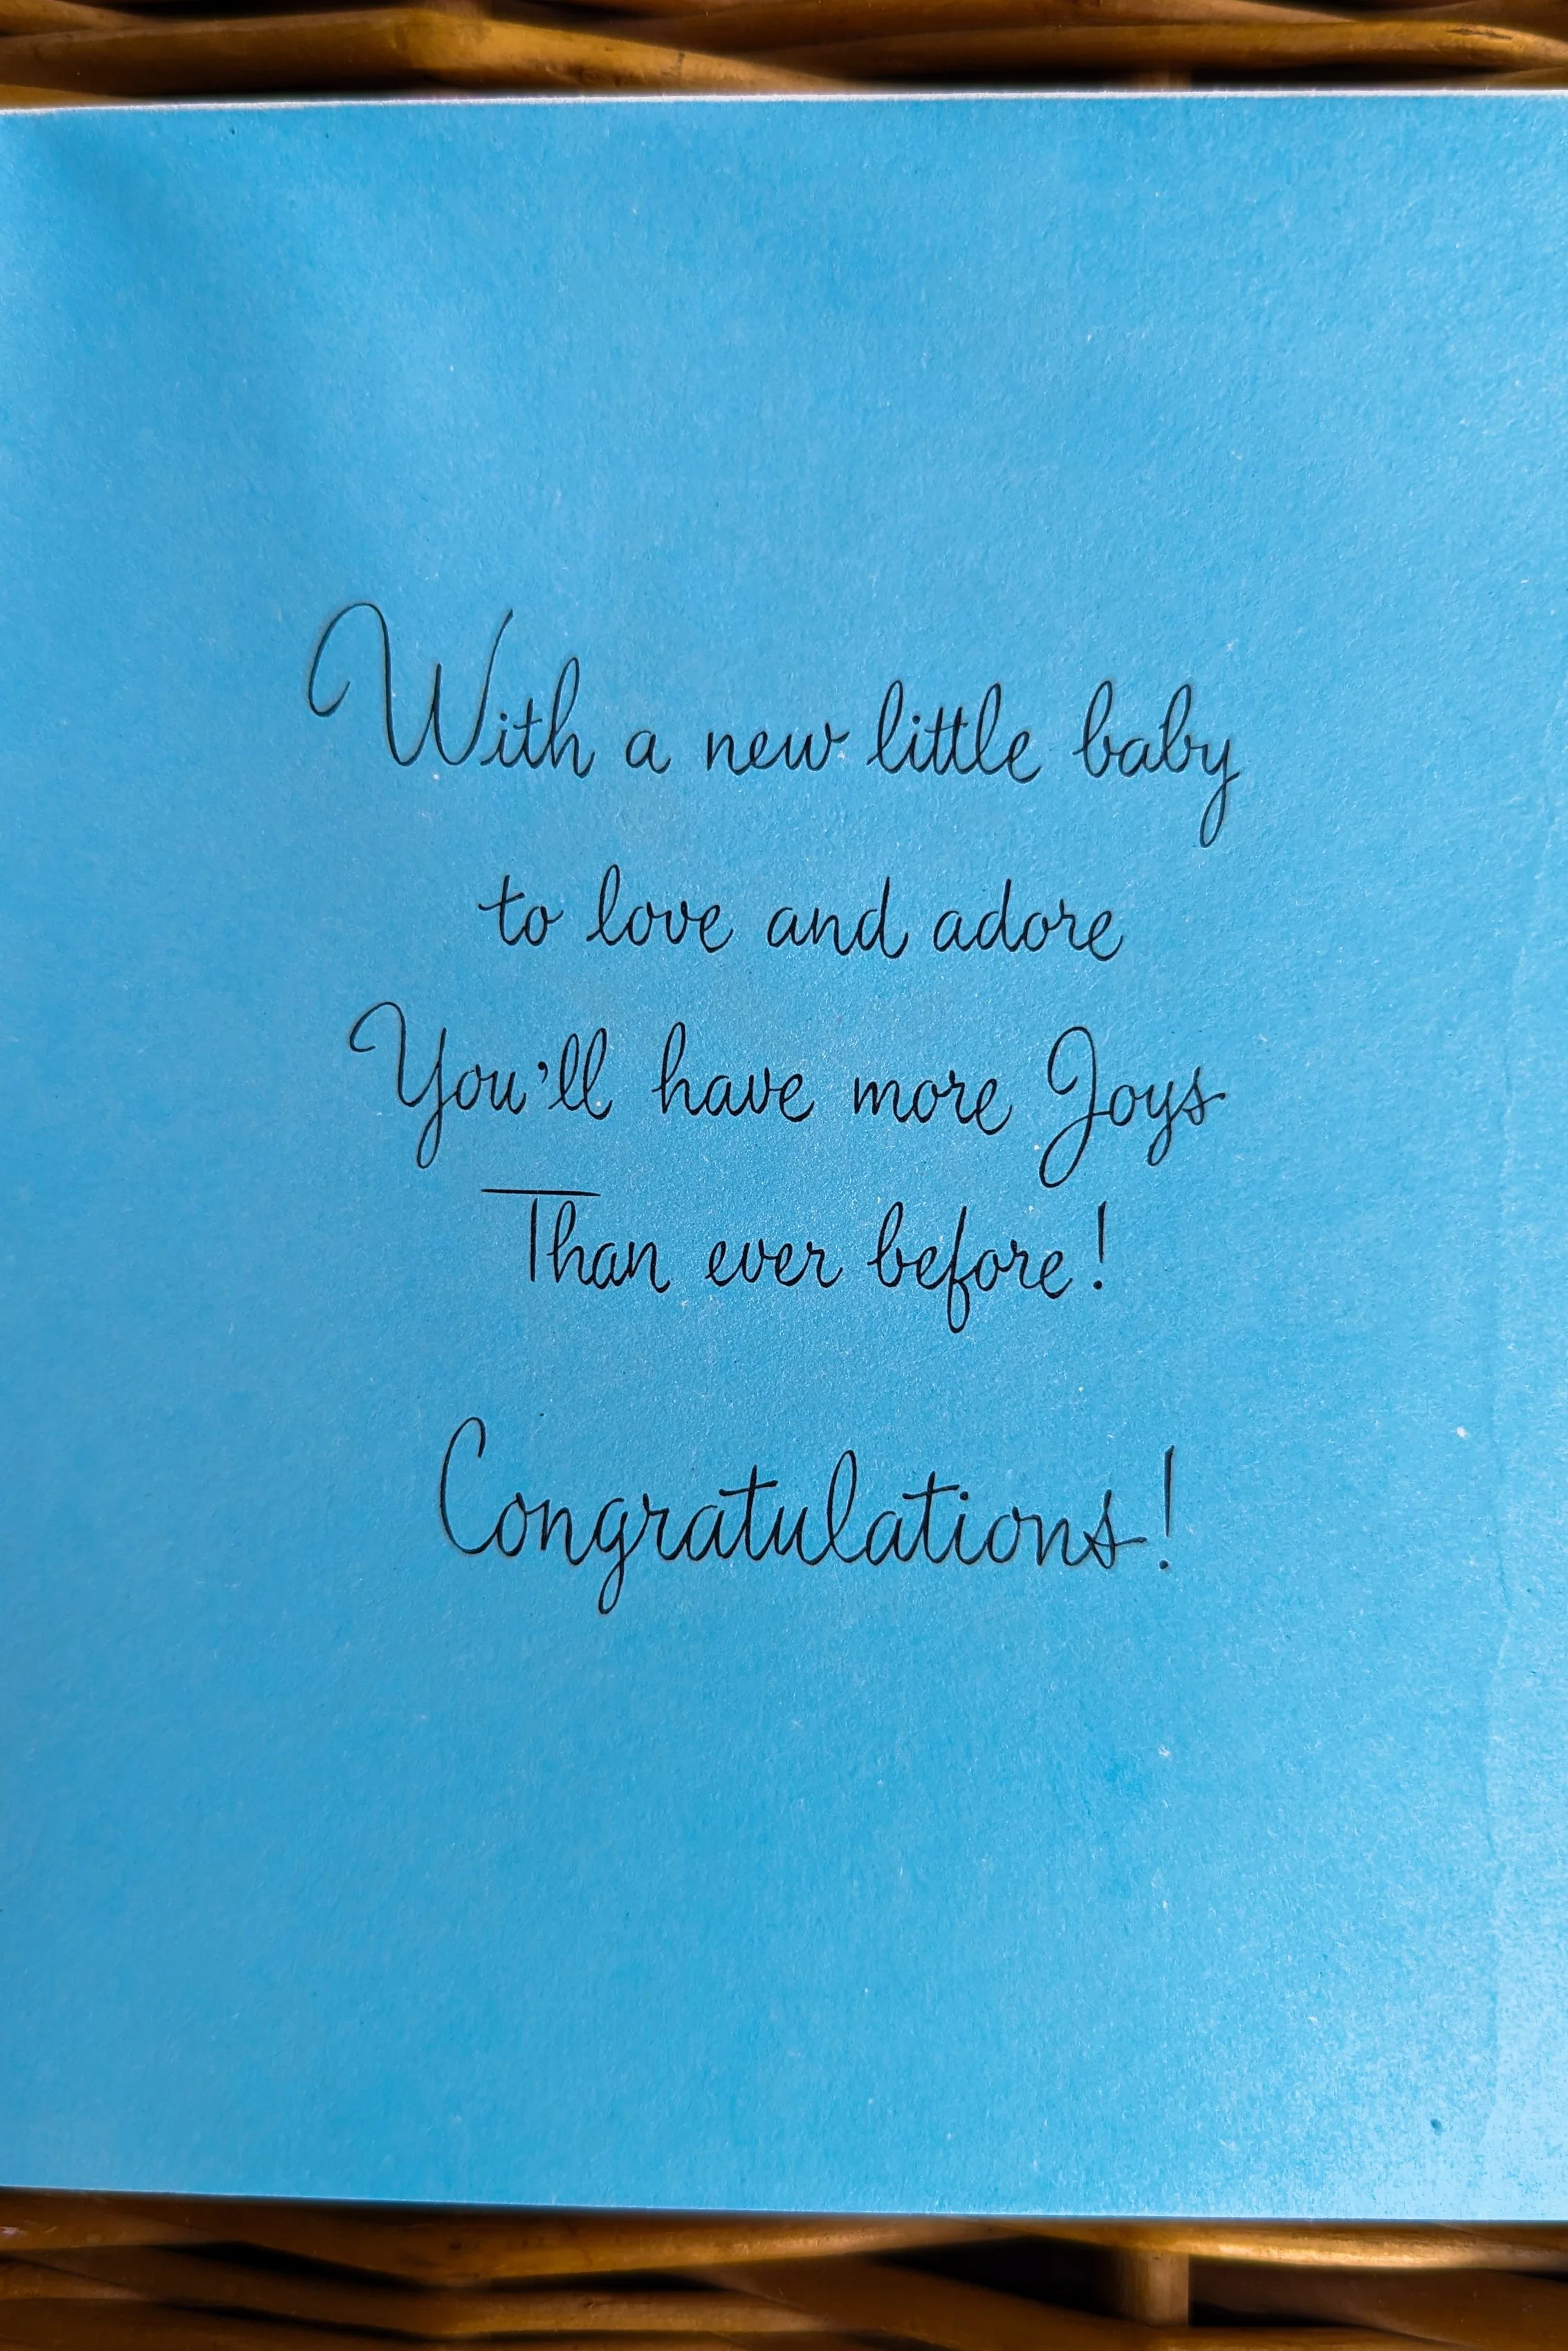 With a new little baby
to love and adore
You'll have more Joys
Than ever before!
Congratulations!